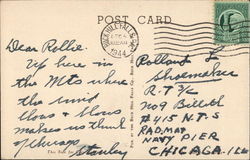 POST CARD
1944
Dear Rollie.
Up here in
the Mts where
the wind
blows & blows
makes us think
of Chicago
Stanley
Rolland L
Shoemaker
R.T. 3/c
No 9 Billit
#415 N.T.S
RAD. MAT
NAVY PIER
CHICAGO. ILL